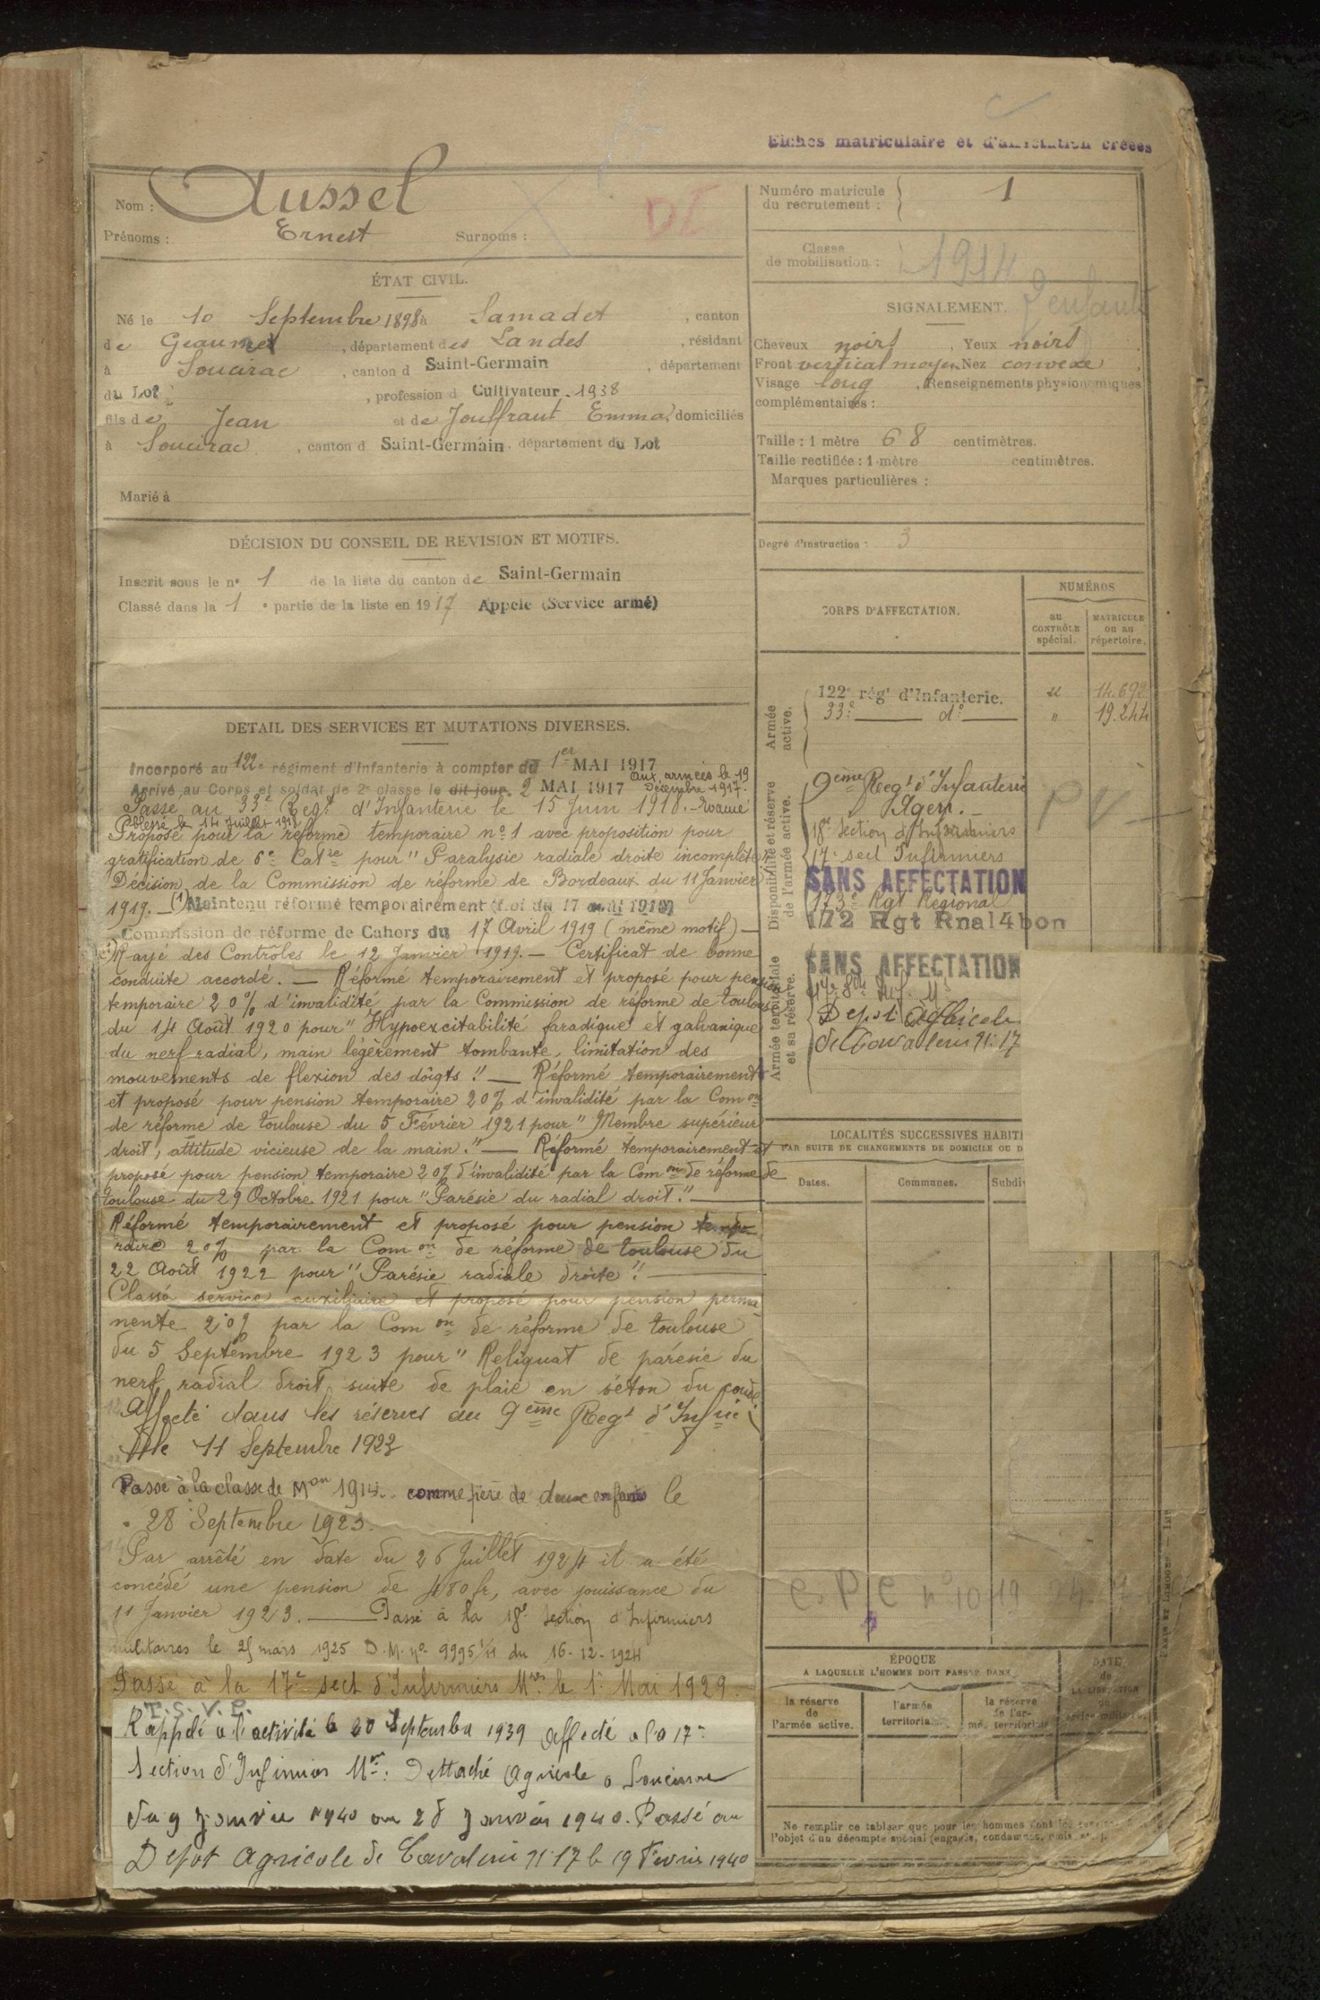 Fiches matriculaire et d'affectation créées
Nom : Aussel
Prénoms : Ernest Surnoms :
DE
Numéro matricule
du recrutement : 1
Classe
de mobilisation : 1914
2 enfants
ÉTAT CIVIL.
Né le 10 Septembre 1898 à Samadet , canton
de Geaune , département des Landes , résidant
à Soucirac , canton d Saint-Germain , département
du Lot , profession d Cultivateur. 1938
fils de Jean et de Jouffraut Emma , domiciliés
à Soucirac , canton d Saint-Germain , département du Lot
Marié à
SIGNALEMENT.
Cheveux noirs , Yeux noirs
Front vertical moyen Nez convexe ,
Visage long , Renseignements physionomiques
complémentaires :
Taille : 1 mètre 68 centimètres.
Taille rectifiée : 1 mètre centimètres.
Marques particulières :
Degré d'instruction : 3
DÉCISION DU CONSEIL DE REVISION ET MOTIFS.
Inscrit sous le n° 1 de la liste du canton de Saint-Germain
Classé dans la 1 e partie de la liste en 1917 Appelé (Service armé)
DÉTAIL DES SERVICES ET MUTATIONS DIVERSES.
Incorporé au 122e régiment d'Infanterie à compter du 1er MAI 1917
Arrivé au Corps et soldat de 2e classe le dit jour. 2 MAI 1917 aux armées le 19
Décembre 1917.
Passé au 33e Regt d'Infanterie le 15 Juin 1918. - Evacué
Blessé le 14 Juillet 1918
Proposé pour la réforme temporaire n° 1 avec proposition pour
gratification de 6e Catie pour "Paralysie radiale droite incomplète"
Décision de la Commission de réforme de Bordeaux du 11 Janvier
1919. - (1) Maintenu réformé temporairement (Loi du 17 août 1919)
Commission de réforme de Cahors du 17 Avril 1919 (même motif) —
(1) Rayé des Contrôles le 12 Janvier 1919. — Certificat de bonne
conduite accordé. — Réformé temporairement et proposé pour pension
temporaire 20% d'invalidité par la Commission de réforme de Toulouse
du 14 Août 1920 pour "Hypoexcitabilité faradique et galvanique
du nerf radial, main légèrement tombante, limitation des
mouvements de flexion des doigts." — Réformé temporairement
et proposé pour pension temporaire 20% d'invalidité par la Com on
de réforme de Toulouse du 5 Février 1921 pour "Membre supérieur
droit, attitude vicieuse de la main." — Réformé temporairement et
proposé pour pension temporaire 20% d'invalidité par la Com on de réforme de
Toulouse du 29 Octobre 1921 pour "Parésie du radial droit." —
Réformé temporairement et proposé pour pension tempo-
raire 20% par la Com on de réforme de Toulouse du
22 Août 1922 pour "Parésie radiale droite." —
Classé service auxiliaire et proposé pour pension perma-
nente 20% par la Com on de réforme de Toulouse
du 5 Septembre 1923 pour "Reliquat de parésie du
nerf radial droit, suite de plaie en séton du coude
Affecté dans les réserves au 9ème Regt d'Inf ie
le 11 Septembre 1923
Passé à la classe de Mon 1914. comme père de deux enfants le
28 Septembre 1923.
Par arrêté en date du 26 Juillet 1924 il a été
concédé une pension de 480 fr, avec jouissance du
11 Janvier 1923. — Passé à la 18e Section d'Infirmiers
militaires le 25 mars 1925 D.M. n° 9995 1/11 du 16-12-1924
Passé à la 17e sect d'Infirmiers Mres le 1er Mai 1929.
T.S.V.P.
Rappelé à l'activité le 20 Septembre 1939 affecté à la 17e
Section d'Infirmiers Mres. Détaché Agricole à Soucirac
du 9 Janvier 1940 au 28 Janvier 1940. Passé au
Dépôt Agricole de Cavalerie N° 17 le 19 Février 1940
CORPS D'AFFECTATION.
NUMÉROS
au
CONTRÔLE
spécial.
MATRICULE
ou au
répertoire.
Armée
active.
122e rég t d'Infanterie. " 14.692
33e — do — " 19.244
Disponibilité et réserve
de l'armée active.
9ème Regt d'Infanterie
Agen.
18e Section d'Infirmiers
17e sect Infirmiers
SANS AFFECTATION
173e Rgt Régional
172 Rgt Rnal 4bon
PV
Armée territoriale
et sa réserve.
SANS AFFECTATION
17e Son Inf. M
Dépôt Agricole
de Cavalerie N° 17
LOCALITÉS SUCCESSIVES HABIT
PAR SUITE DE CHANGEMENTS DE DOMICILE OU D
Dates. Communes. Subdi
ÉPOQUE
A LAQUELLE L'HOMME DOIT PASSER DANS
DATE
de
LA LIBÉRATION
du
service militaire.
la réserve
de
l'armée active.
l'armée
territoriale
la réserve
de l'ar-
mée territoriale
Ne remplir ce tableau que pour les hommes dont les
l'objet d'un décompte spécial (engagés, condamnés,